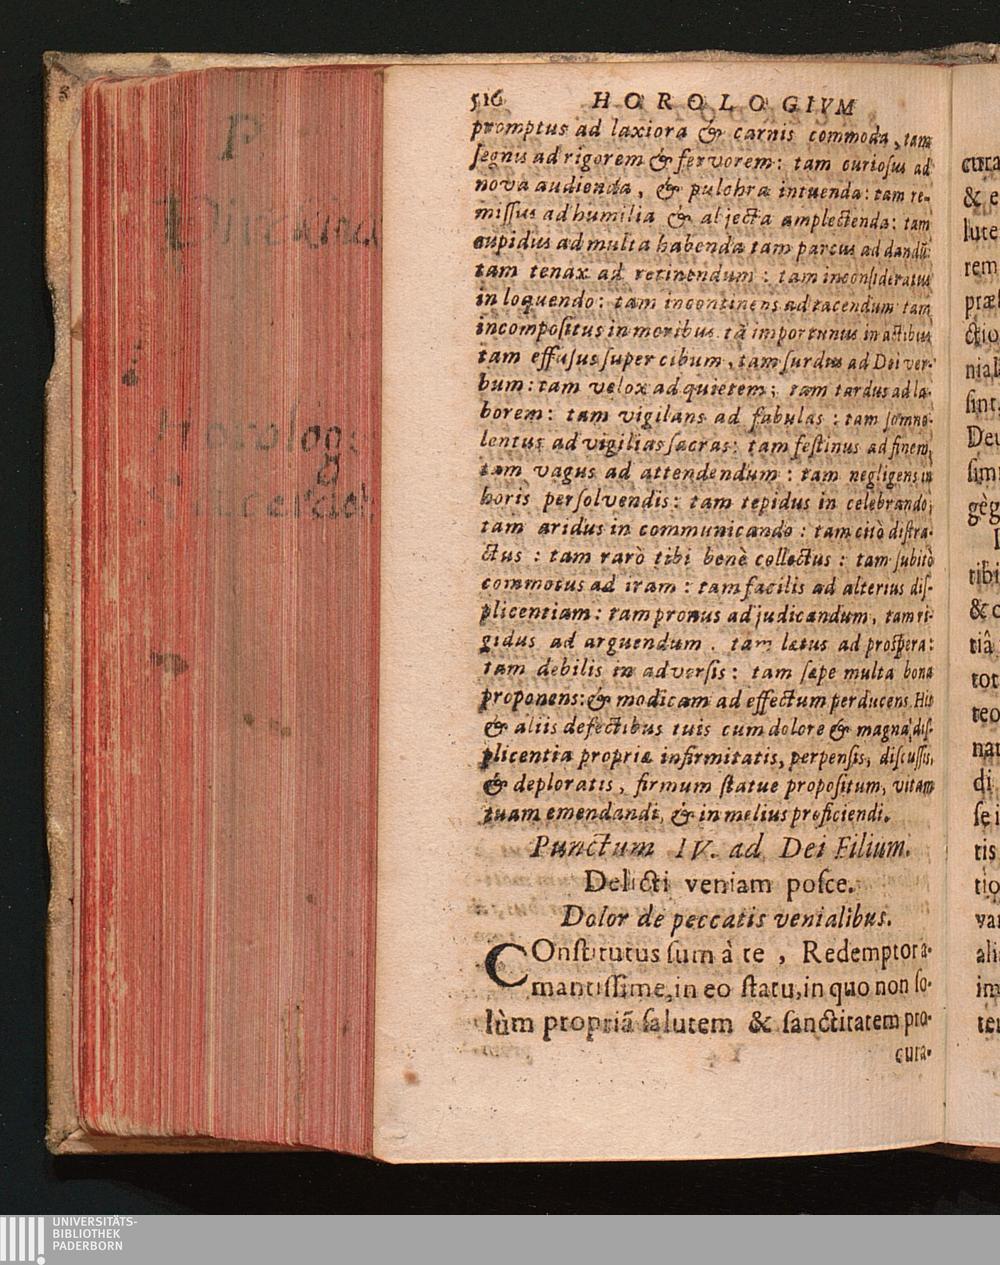 516 HOROLOGIVM
promptus ad laxiora & carnis commoda, tam
segnis ad rigorem & fervorem: tam curiosus ad
nova audienda, & pulchra intuenda: tam re-
missus ad humilia & abjecta amplectenda: tam
cupidus ad multa habenda tam parcus ad dandū:
tam tenax ad retinendum: tam inconsideratus
in loquendo: tam incontinens ad tacendum tam
incompositus in moribus. tā importunus in actibus
tam effusus super cibum, tam surdus ad Dei ver-
bum: tam velox ad quietem; tam tardus ad la-
borem: tam vigilans ad fabulas: tam somno-
lentus ad vigilias sacras: tam festinus ad finem,
tam vagus ad attendendum: tam negligens in
horis persolvendis: tam tepidus in celebrando;
tam aridus in communicando: tam citò distra-
ctus: tam rarò tibi benè collectus: tam subitò
commotus ad iram: tam facilis ad alterius dis-
plicentiam: tam pronus ad judicandum, tam ri-
gidus ad arguendum. tam lætus ad prospera:
tam debilis in adversis: tam sæpe multa bona
proponens: & modicam ad effectum perducens. His
& aliis defectibus tuis cum dolore & magnâ dis-
plicentia propriæ infirmitatis, perpensis, discussis,
& deploratis, firmum statue propositum, vitam
tuam emendandi, & in melius proficiendi.
Punctum IV. ad Dei Filium.
Delicti veniam posce.
Dolor de peccatis venialibus.
COnstitutus sum à te, Redemptor a-
mantissime, in eo statu, in quo non so-
lùm propriā salutem & sanctitatem pro-
cura-
cura
& e
lute
rem
ctio
sint.
Deu
tibi
& c
tiâ
tot
teo
nat
di
se i
tis
tio
va
ali
im
ter
UNIVERSITÄTS-
BIBLIOTHEK
PADERBORN